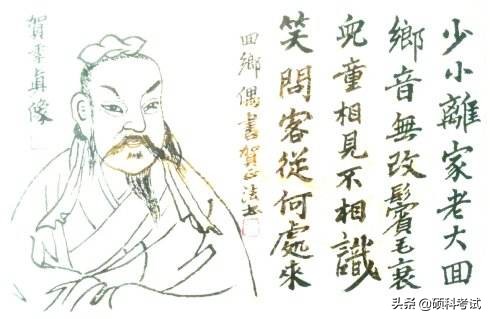 少小離家老大囬
鄉音無改鬢毛衰
兒童相見不相識
笑問客從何處來
囬鄉偶書賀正法
賀季真像
头条 @硕科考试